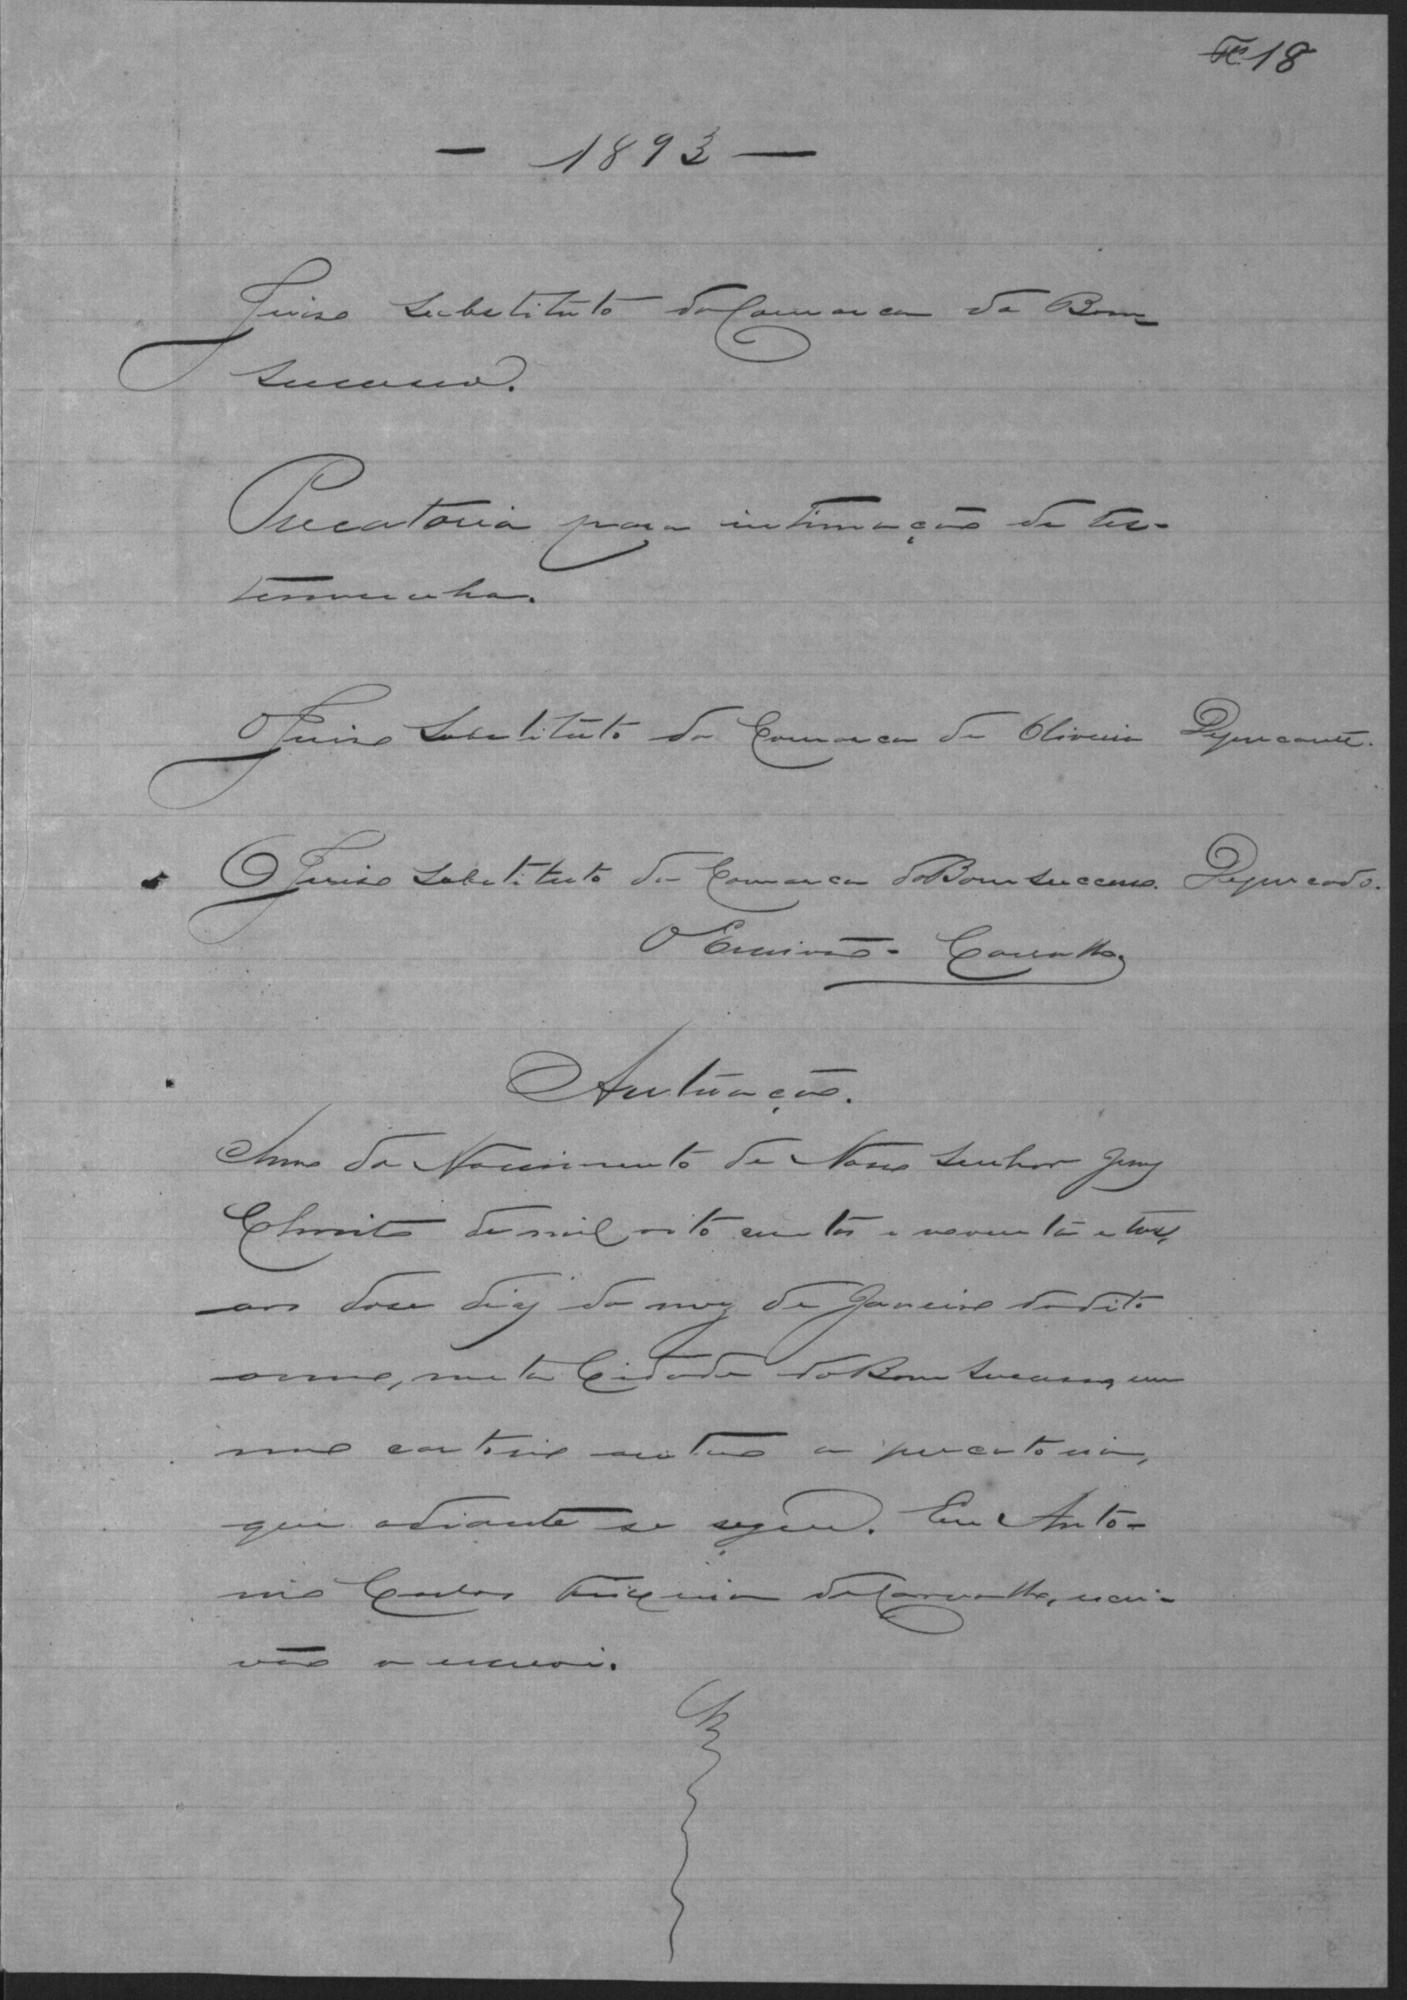 Fls 18
— 1893 —
Juiso Substituto da Comarca do Bom
Successo.
Precatoria para intimação de tes-
temunha.
O Juiso Substituto da Comarca de Oliveira Deprecante.
O Juiso Substituto da Comarca do Bom Successo. Deprecado.
O Escrivão - Carvalho
Autuação.
Anno do Nascimento de Nosso Senhor Jesus
Christo de mil oito centos e noventa e tres,
aos dose dias do mez de Janeiro do dito
anno, nesta Cidade do Bom Successo, em
meu cartorio autuo a precatoria,
que adiante se segue. Eu Anto-
nio Carlos Teixeira de Carvalho, escri-
vão o escrevi.